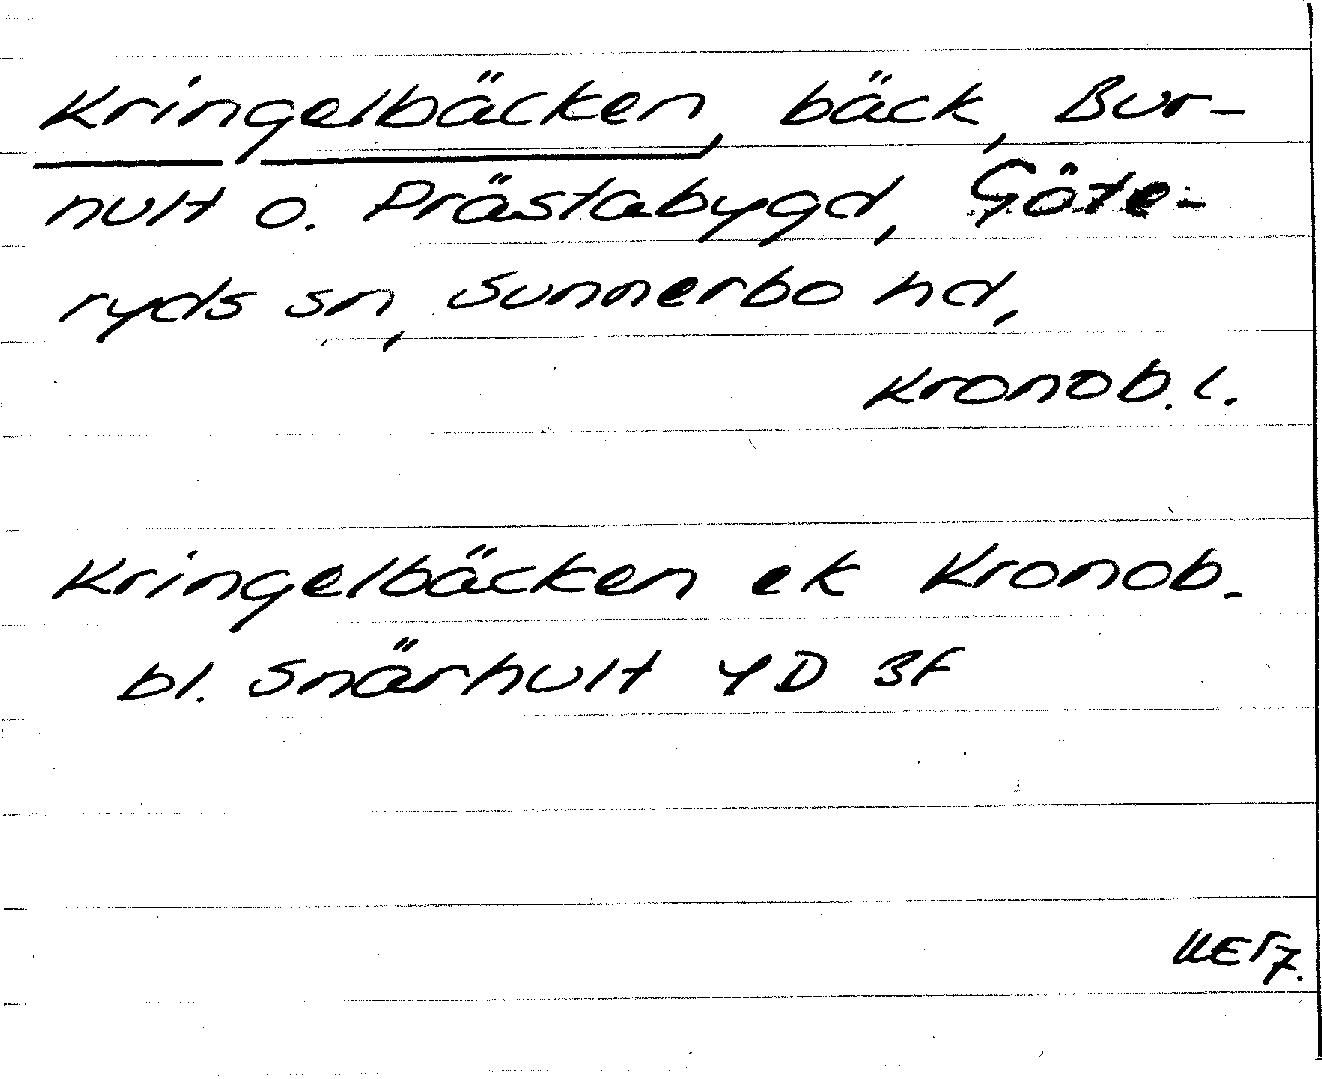 Kringelbäcken, bäck, Bur-
nult o. Prästabygd, Göte-
ryds sn, Sunnerbo hd,
Kronob. l.
Kringelbäcken ek Kronob.
bl. Snärhult 4D 3F